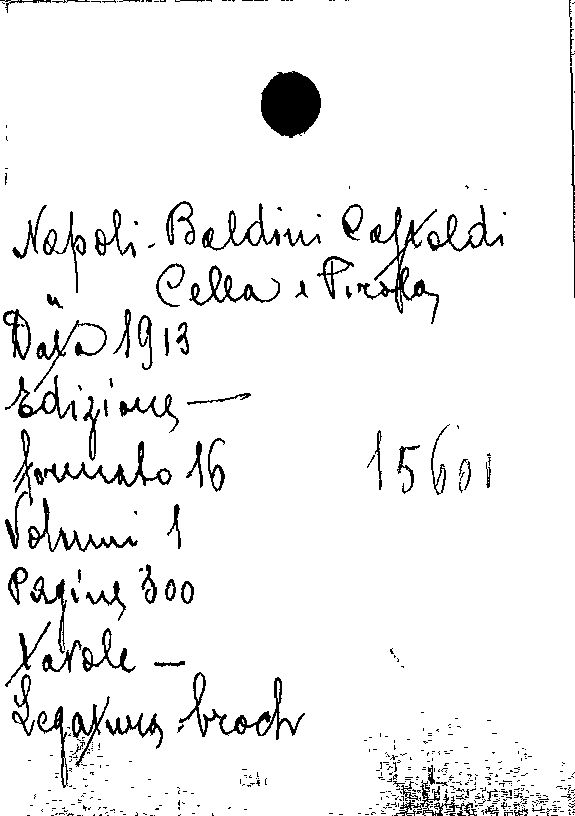 Napoli - Baldini Castoldi
Cella e Pirola
Data 1913
Edizione —
formato 16
15601
Volumi 1
Pagine 300
Tavole —
Legatura broch